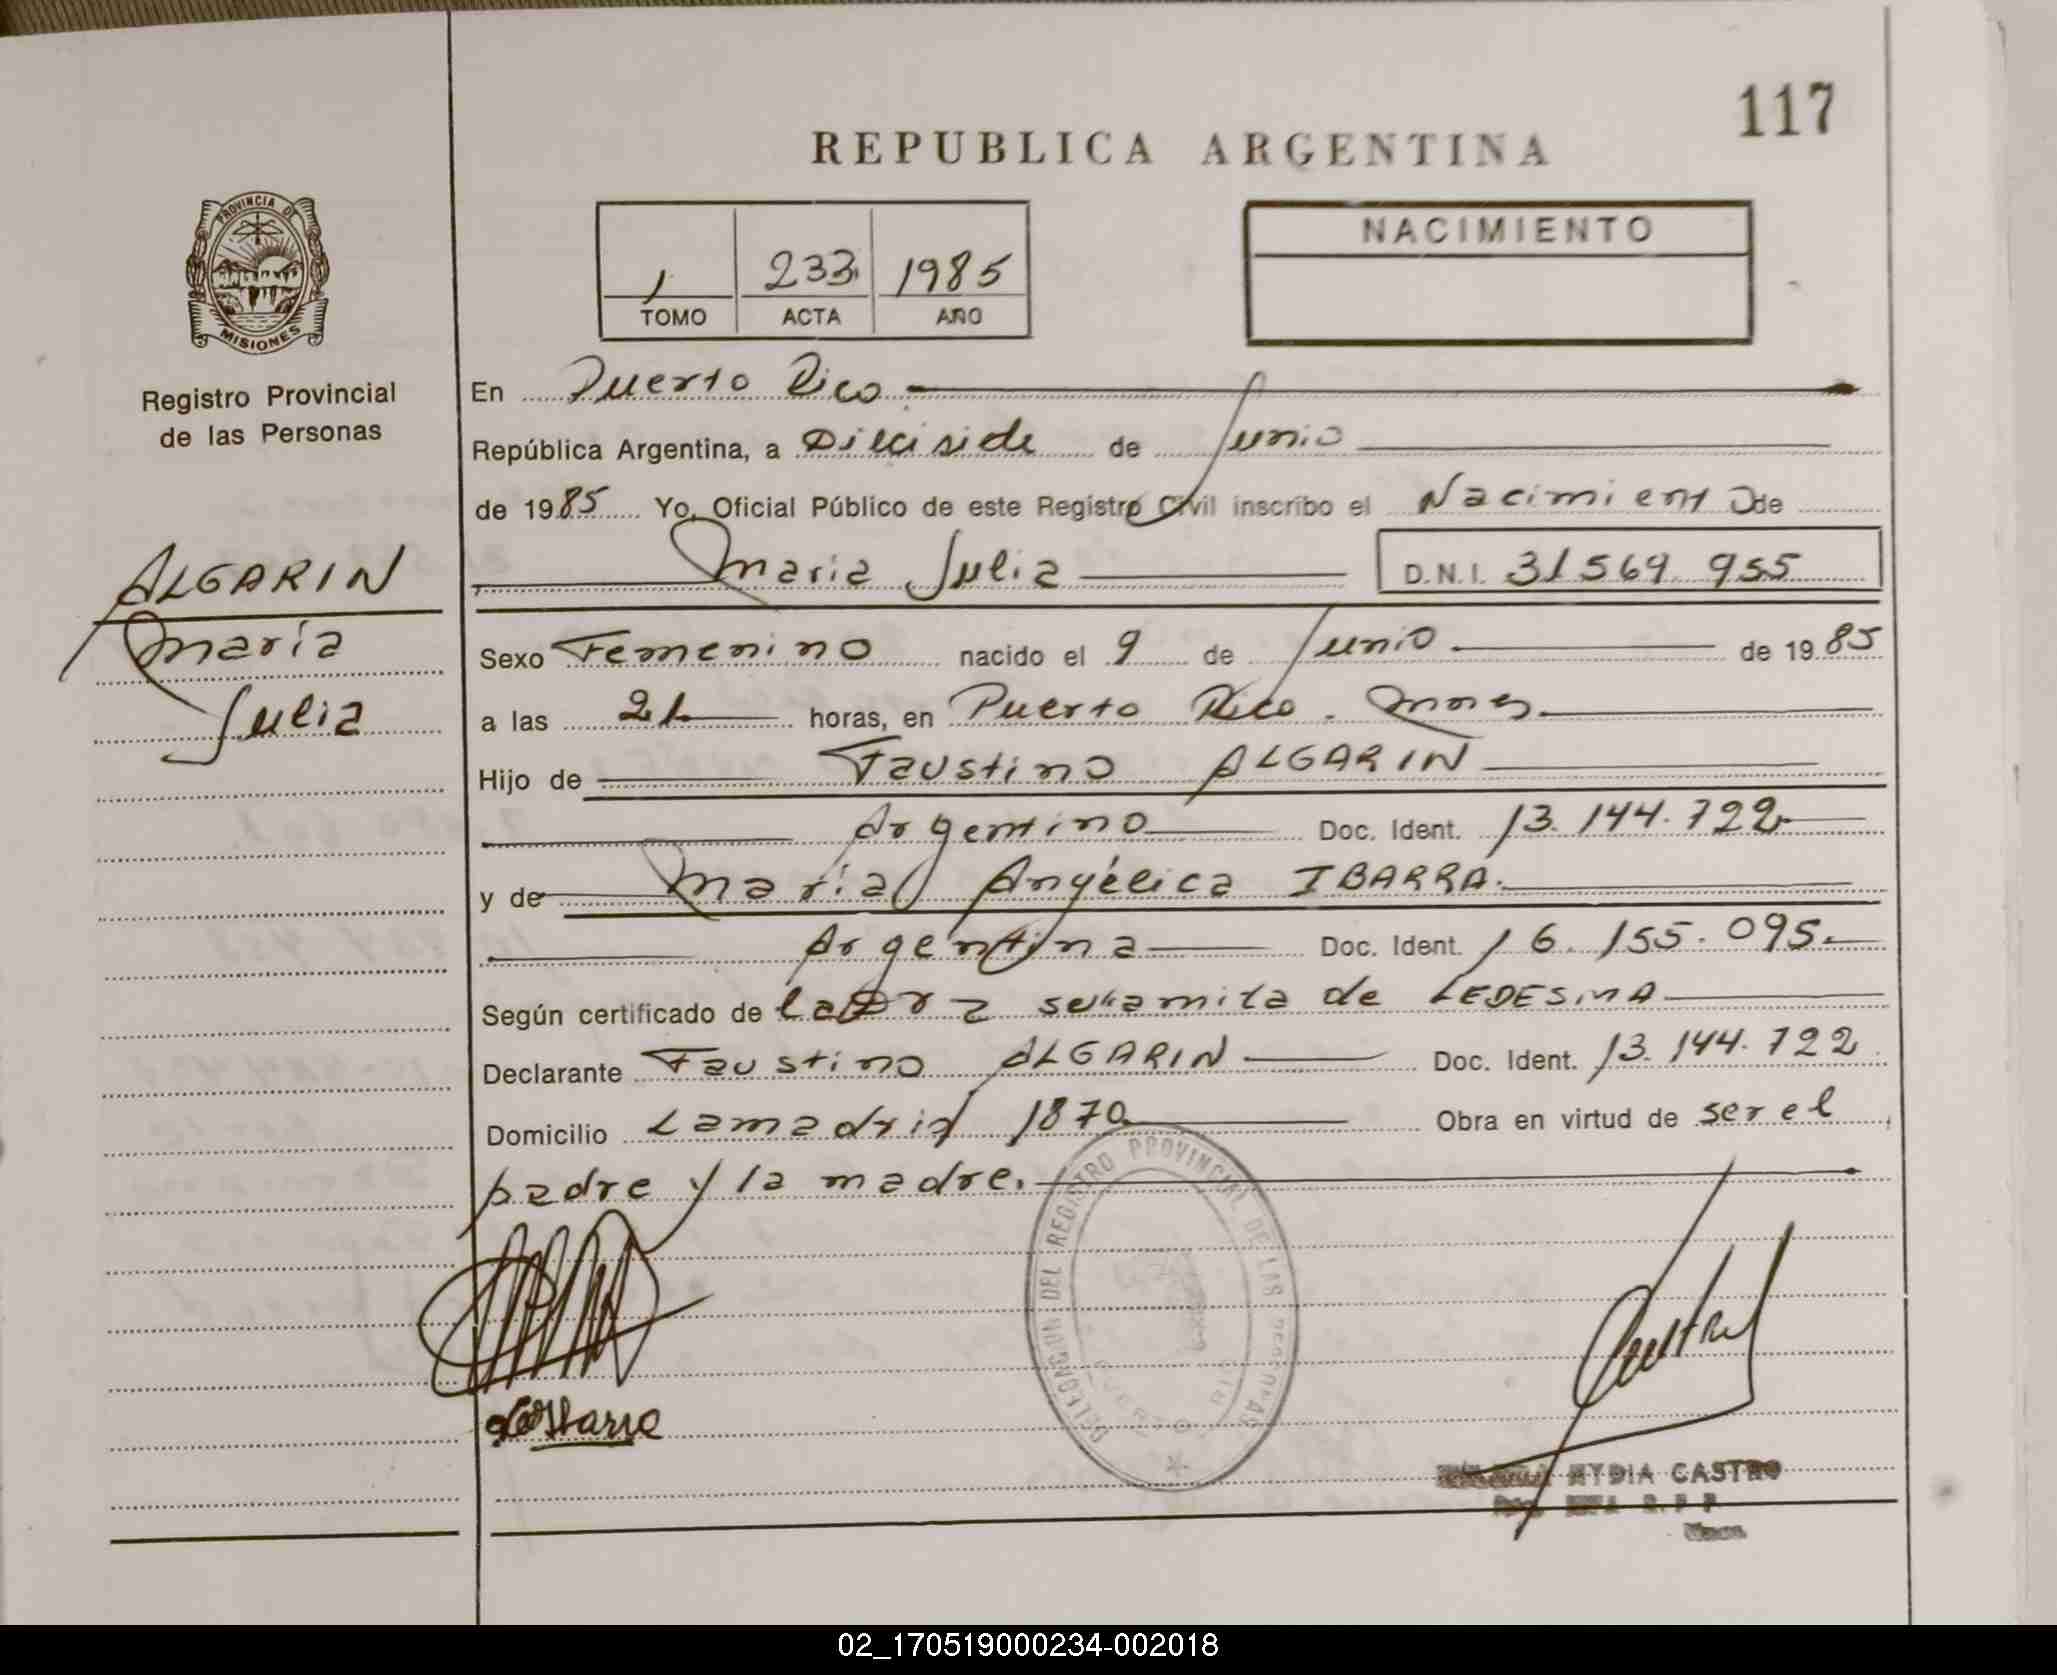 117
REPUBLICA ARGENTINA
PROVINCIA DE
MISIONES
Registro Provincial
de las Personas
1 233 1985
TOMO ACTA AÑO
NACIMIENTO
En Puerto Rico
República Argentina, a Diecisiete de Junio
de 1985 Yo, Oficial Público de este Registro Civil inscribo el Nacimiento de
Maria Julia D.N.I. 31 569 955
ALGARIN
Maria
Julia
Sexo Femenino nacido el 9 de Junio de 1985
a las 21 horas, en Puerto Rico. Mnes.
Hijo de Faustino ALGARIN
Argentino Doc. Ident. 13.144.722
y de Maria Angélica IBARRA.
Argentina Doc. Ident. 16.155.095.
Según certificado de la Dra sulamita de LEDESMA
Declarante Faustino ALGARIN Doc. Ident. 13.144.722
Domicilio Lamadrid 1870 Obra en virtud de ser el
padre y la madre.
DELEGACION DEL REGISTRO PROVINCIAL DE LAS PERSONAS
PUERTO RICO
NYDIA CASTRO
02_170519000234-002018